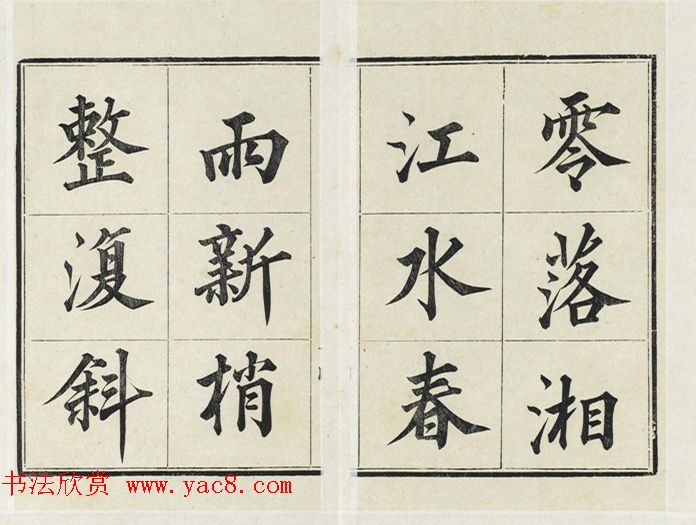 零落湘
江水春
雨新梢
整澓斜
书法欣赏 www.yac8.com